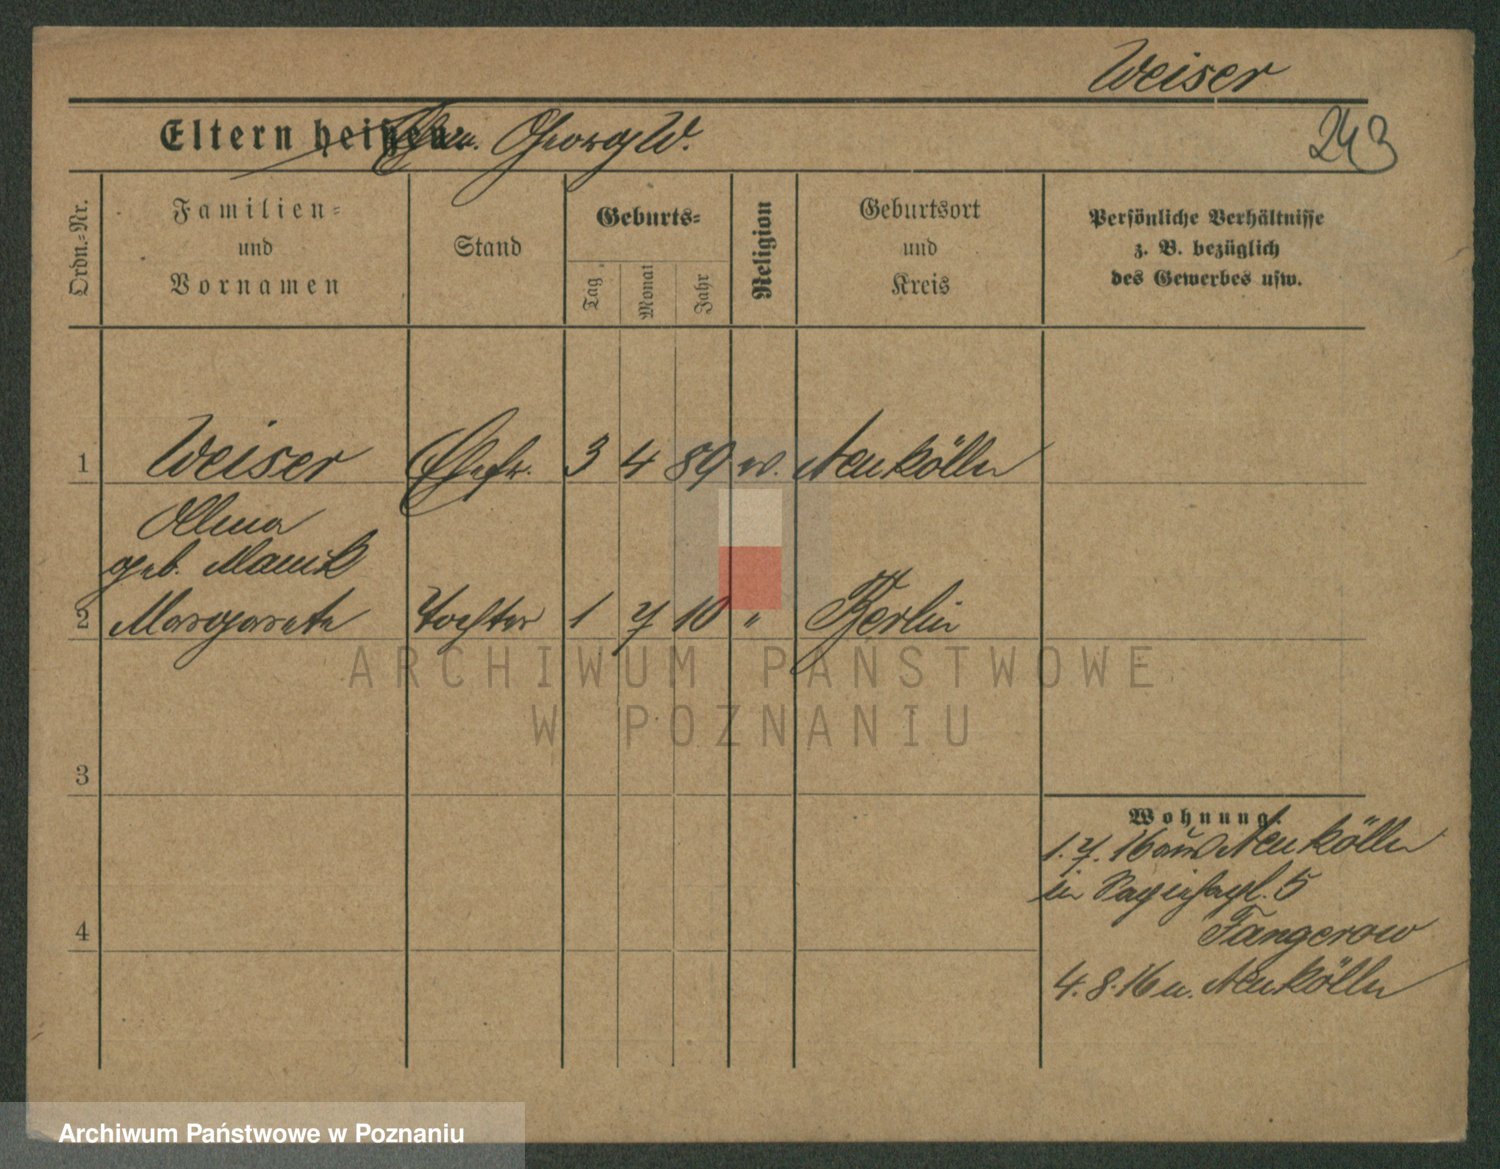 Weiser
Eltern heißen: Ehem. Georg W.
243
Ordn.-Nr.
Familien-
und
Vornamen
Stand
Geburts-
Tag
Monat
Jahr
Religion
Geburtsort
und
Kreis
Persönliche Verhältnisse
z. B. bezüglich
des Gewerbes usw.
1 Weiser Ehefr. 3 4 89 ev. Neukölln
Alma
geb.
2 Margarete Tochter 1 7 10 " Berlin
3
4
Wohnung:
1.7.16 aus Neukölln
in 5
Tangerow
4.8.16 n. Neukölln
ARCHIWUM PAŃSTWOWE
W POZNANIU
Archiwum Państwowe w Poznaniu